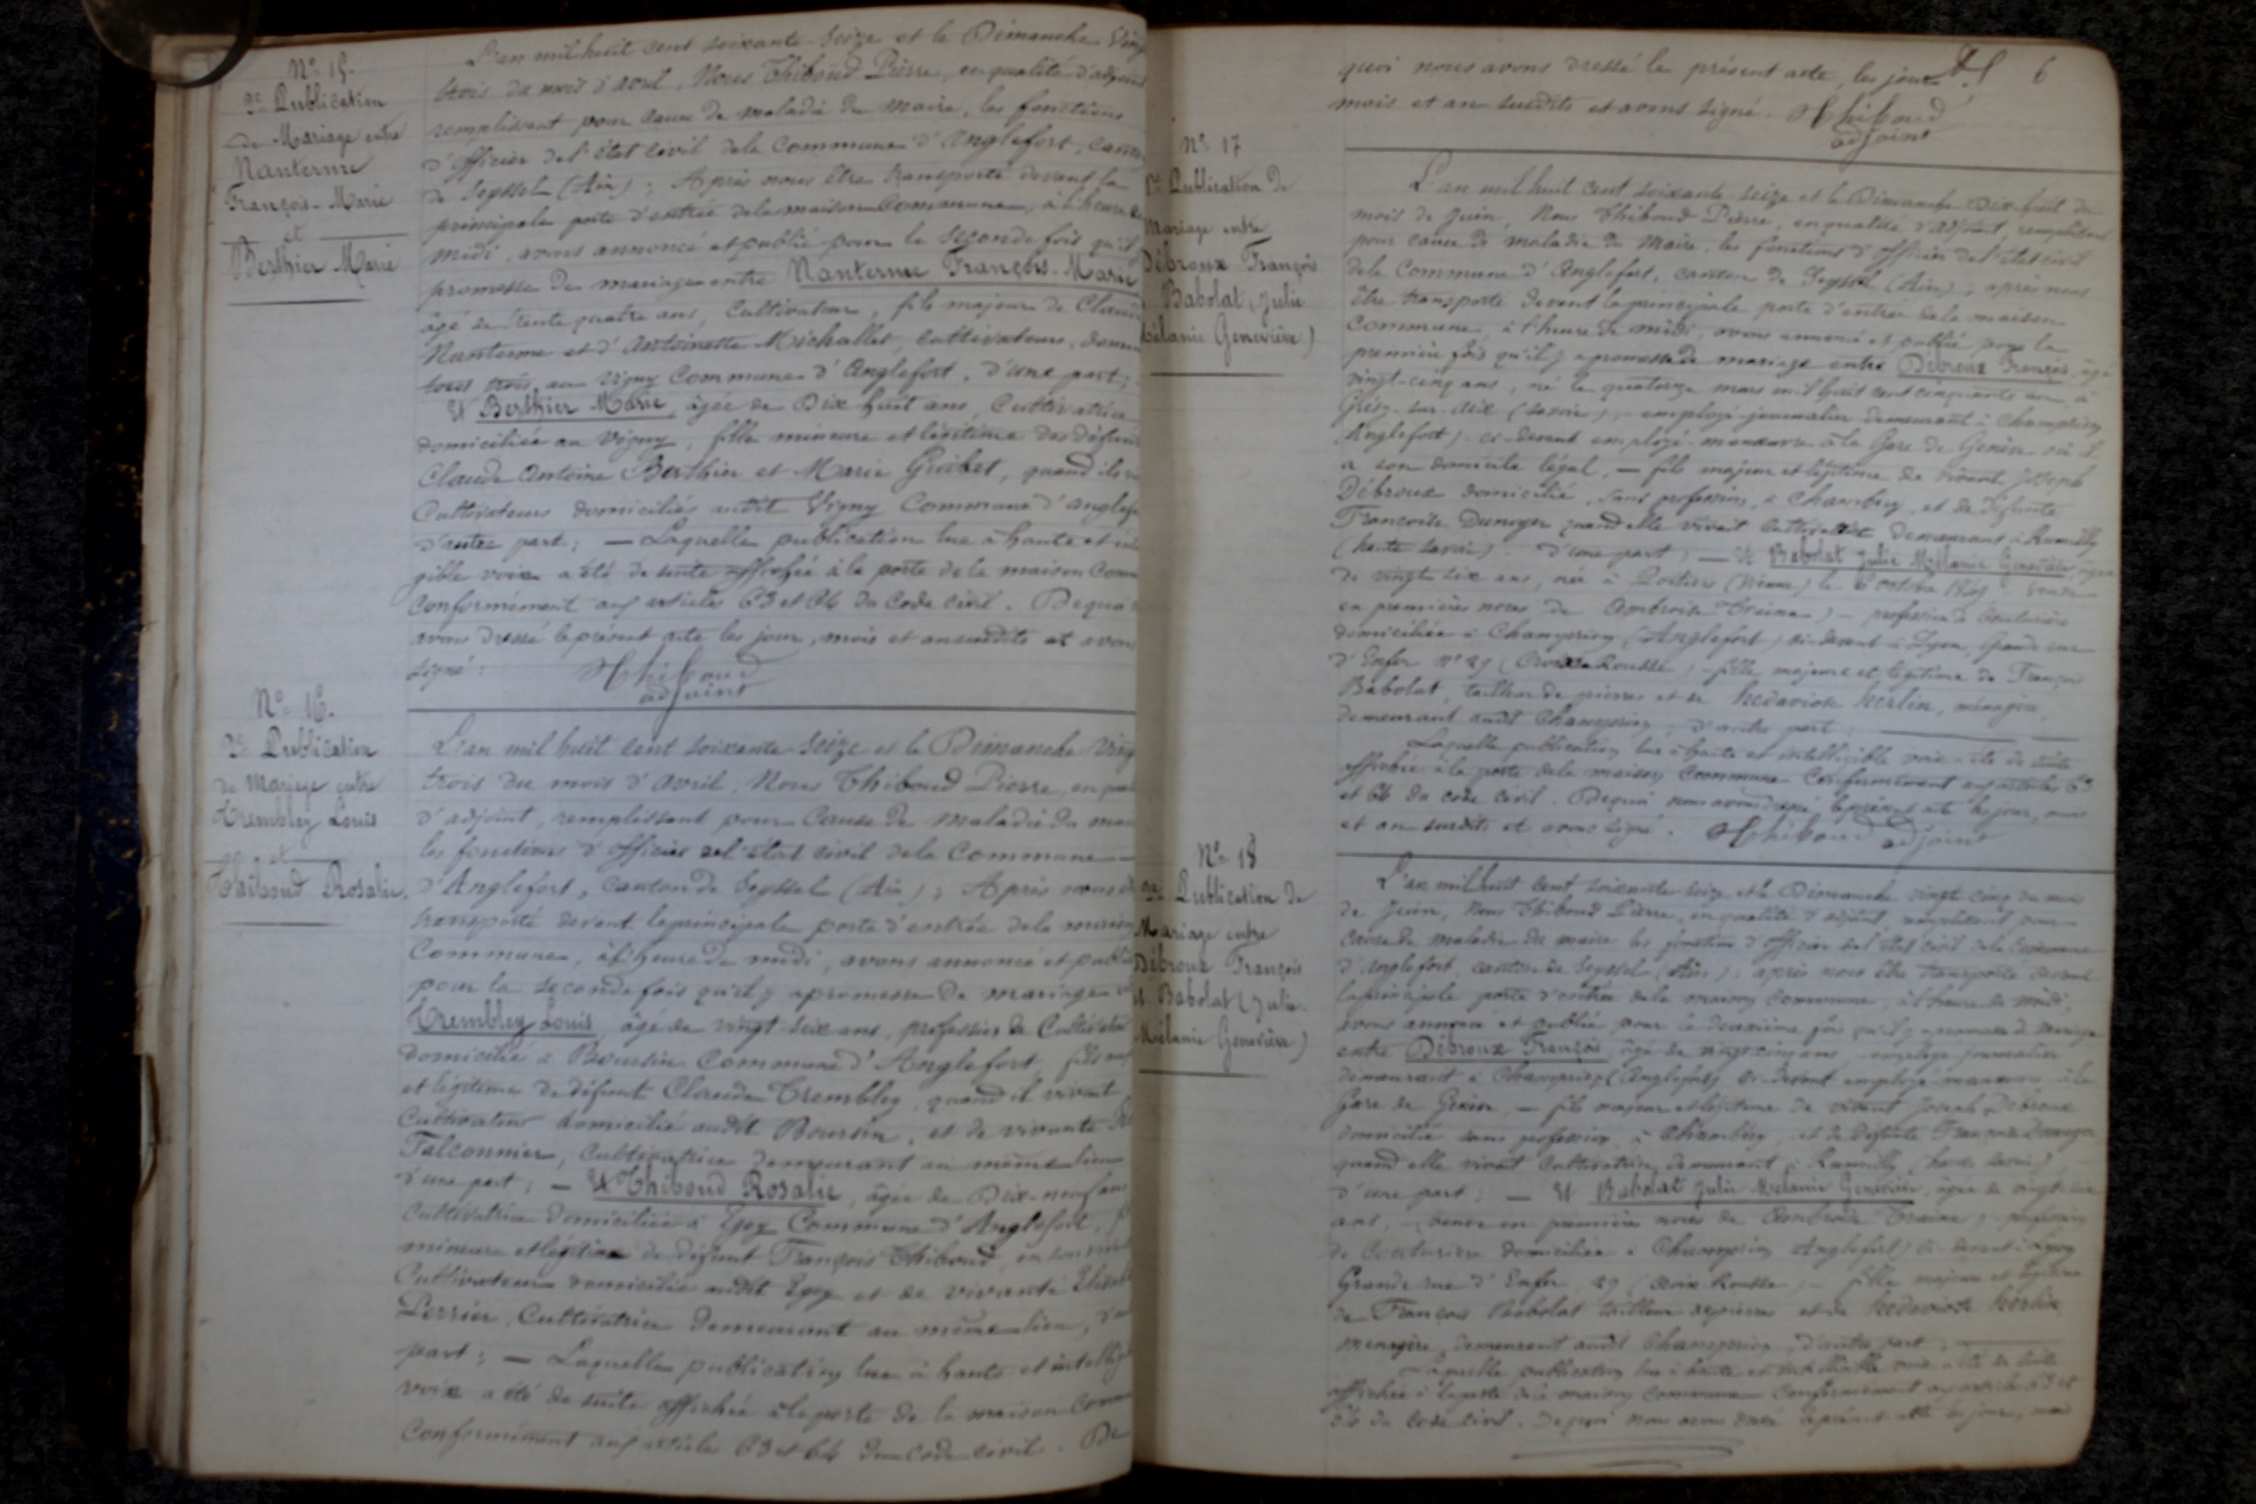 Nº 15.
2e Publication
de Mariage entre
Nanterme
François-Marie
et
Berthier Marie
L'an mil huit cent soixante-seize et le Dimanche Vingt
trois du mois d'avril, Nous Thiboud Pierre, en qualité d'adjoint
remplissant pour cause de maladie du maire, les fonctions
d'officier de l'état civil de la Commune d'Anglefort, canton
de Seyssel (Ain); Après nous être transporté devant la
principale porte d'entrée de la maison Commune, à l'heure de
midi, avons annoncé et publié pour la seconde fois qu'il y
promesse de mariage entre Nanterme François-Marie
âgé de trente quatre ans, Cultivateur, fils majeur de Claude
Nanterme et d'Antoinette Michallet, Cultivateurs,
tous trois au Vigny Commune d'Anglefort, d'une part;
Et Berthier Marie, âgée de Dix huit ans, Cultivatrice
domiciliée au Vigny, fille mineure et légitime des défunts
Claude Antoine Berthier et Marie Guibet, quand ils
Cultivateurs domiciliés audit Vigny Commune d'Anglefo
d'autre part; — Laquelle publication lue à haute et
gible voix a été de suite affichée à la porte de la maison Comm
Conformément aux articles 63 et 64 du Code civil. De quoi
avons dressé le présent acte les jour, mois et an susdits et avons
signé: Thiboud
adjoint
Nº 16.
2e Publication
de Mariage entre
Trembley Louis
et
Thiboud Rosalie.
L'an mil huit cent soixante-seize et le Dimanche Ving
trois du mois d'avril, Nous Thiboud Pierre, en qua
d'adjoint, remplissant pour Cause de maladie du mai
les fonctions d'officier de l'état civil de la Commune
d'Anglefort, canton de Seyssel (Ain); Après nous
transporté devant la principale porte d'entrée de la maison
Commune, à l'heure de midi, avons annoncé et publié
pour la seconde fois qu'il y a promesse de mariage
Trembley Louis, âgé de vingt-six ans, profession de Cultivateur
domicilié à Boursin Commune d'Anglefort, fils
et légitime de défunt Claude Trembley, quand il vivait
Cultivateur domicilié audit Boursin, et de vivante
Falconnier, Cultivatrice demeurant au même lieu
d'une part; — Et Thiboud Rosalie, âgée de Dix-neuf ans
Cultivatrice domiciliée à Commune d'Anglefort, f
mineure et légitime de défunt François Thiboud, en son
Cultivateur domicilié audit et de vivante
Perrier, Cultivatrice demeurant au même lieu, d'au
part; — Laquelle publication lue à haute et intelligi
voix a été de suite affichée à la porte de la maison Comm
Conformément aux articles 63 et 64 du Code civil. De
6
quoi nous avons dressé le présent acte, les jour
mois et an susdits et avons signé. Thiboud
adjoint
Nº 17
1e Publication de
Mariage entre
Débroux François
Babolat (Julie
Mélanie Geneviève)
L'an mil huit cent soixante seize et le Dimanche Dix-huit du
mois de Juin, Nous Thiboud Pierre, en qualité d'adjoint, remplissant
pour cause de maladie du Maire, les fonctions d'officier de l'état civil
de la Commune d'Anglefort, canton de Seyssel (Ain); après nous
être transporté devant la principale porte d'entrée de la maison
Commune, à l'heure de midi, avons annoncé et publié pour la
première fois qu'il y a promesse de mariage entre Débroux François, âgé
vingt-cinq ans, né le quatorze mars mil huit cent cinquante un à
Grésy-sur-Aix (Savoie), employé journalier demeurant à Champriond
(Anglefort) ci-devant employé-manœuvre à la Gare de Genève où il
a son domicile légal, — fils majeur et légitime de vivant Joseph
Débroux domicilié, sans profession, à Chambéry, et de défunte
Françoise quand elle vivait Cultivatrice demeurant à Rumilly
(haute Savoie). D'une part; — Et Babolat Julie Mélanie Geneviève, âgée
de vingt six ans, née à Poitiers (Vienne) le 6 octobre 1849, veuve
en premières noces de Ambroise — profession de Couturière
domiciliée à (Anglefort) ci-devant à Lyon, Grande rue
d'Enfer nº 29 (Croix Rousse) — fille majeure et légitime de François
Babolat, tailleur de pierres et de herlin, ménagère,
demeurant audit d'autre part;
Laquelle publication lue à haute et intelligible voix a été de suite
affichée à la porte de la maison Commune Conformément aux articles 63
et 64 du code civil. De quoi nous avons dressé le présent acte les jour, mois
et an susdits et avons signé. Thiboud adjoint
Nº 18
2e Publication de
Mariage entre
Débroux François
et Babolat (Julie
Mélanie Geneviève)
L'an mil huit cent soixante-seize et le Dimanche vingt cinq du mois
de Juin, Nous Thiboud Pierre, en qualité d'adjoint, remplissant pour
cause de maladie du maire les fonctions d'officier de l'état civil de la Commune
d'Anglefort, canton de Seyssel (Ain); après nous être transporté devant
la principale porte d'entrée de la maison Commune, à l'heure de midi,
avons annoncé et publié pour la deuxième fois qu'il y a promesse de mariage
entre Débroux François, âgé de vingt cinq ans, employé journalier
demeurant à (Anglefort) ci-devant employé manœuvre à la
Gare de Genève, — fils majeur et légitime de vivant Joseph Débroux
domicilié sans profession à Chambéry, et de défunte Françoise
quand elle vivait Cultivatrice demeurant à Rumilly (haute Savoie)
d'une part; — Et Babolat Julie Mélanie Geneviève, âgée de vingt-six
ans, — veuve en premières noces de Ambroise — profession
de Couturière domiciliée à (Anglefort) ci-devant à Lyon
Grande rue d'Enfer 29 (Croix Rousse) — fille majeure et légitime
de François Babolat tailleur de pierres et de herlin
ménagère, demeurant audit d'autre part.
Laquelle publication lue à haute et intelligible voix a été de suite
affichée à la porte de la maison Commune Conformément aux articles 63 et
64 du Code civil. De quoi nous avons dressé le présent acte les jour, mois